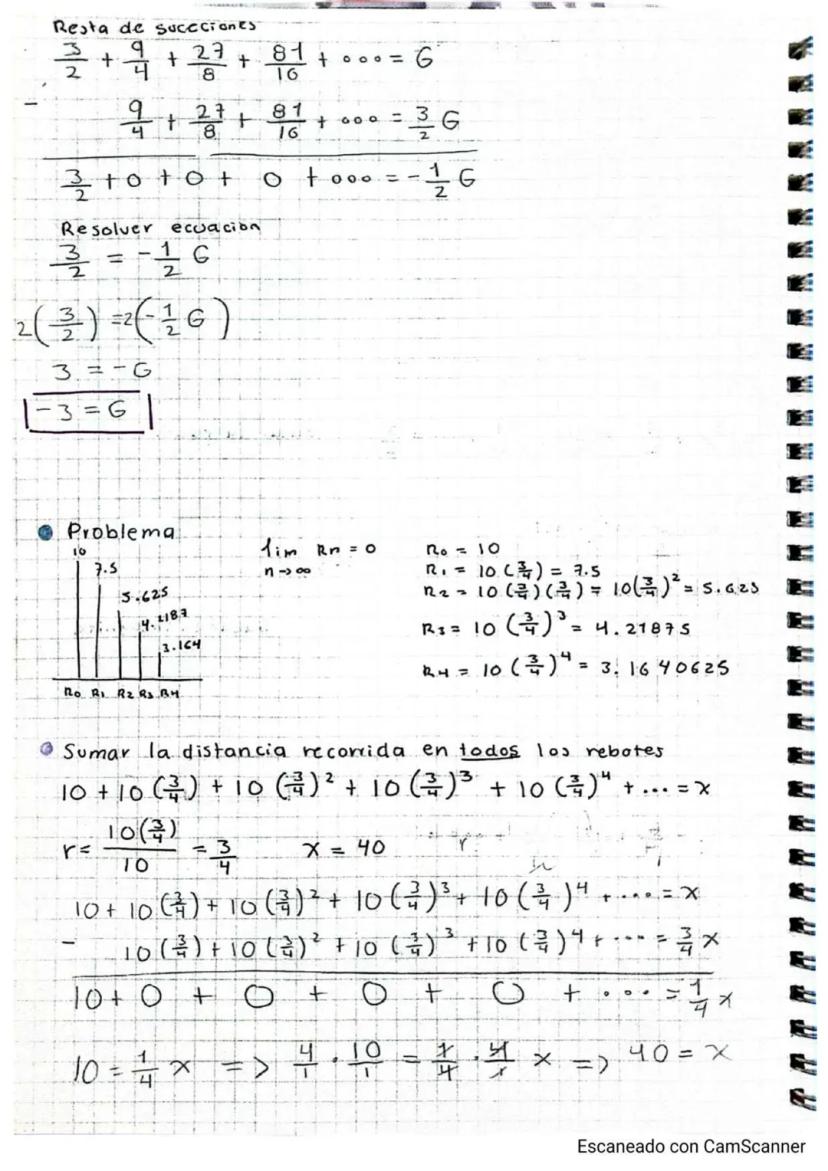 Resta de succciones
3/2 + 9/4 + 27/8 + 81/16 + ∘∘∘ = G
- 9/4 + 27/8 + 81/16 + ∘∘∘ = 3/2 G
3/2 + 0 + 0 + 0 + ∘∘∘ = - 1/2 G
Resolver ecuacion
3/2 = - 1/2 G
2(3/2) = 2(- 1/2 G)
3 = -G
-3 = G
Problema
10
7.5
5.625
4.2187
3.164
R0 R1 R2 R3 R4
lim Rn = 0
n→∞
R0 = 10
R1 = 10 (3/4) = 7.5
R2 = 10 (3/4)(3/4) = 10(3/4)² = 5.625
R3 = 10 (3/4)³ = 4.21875
R4 = 10 (3/4)⁴ = 3.1640625
Sumar la distancia recorrida en todos los rebotes
10 + 10 (3/4) + 10 (3/4)² + 10 (3/4)³ + 10 (3/4)⁴ + ... = x
r = 10(3/4)/10 = 3/4 x = 40
10 + 10 (3/4) + 10 (3/4)² + 10 (3/4)³ + 10 (3/4)⁴ + .... = x
- 10 (3/4) + 10 (3/4)² + 10 (3/4)³ + 10 (3/4)⁴ + .... = 3/4 x
10 + 0 + 0 + 0 + 0 + .... = 1/4 x
10 = 1/4 x => 4/1 · 10/1 = 1/4 · 4/1 x => 40 = x
Escaneado con CamScanner